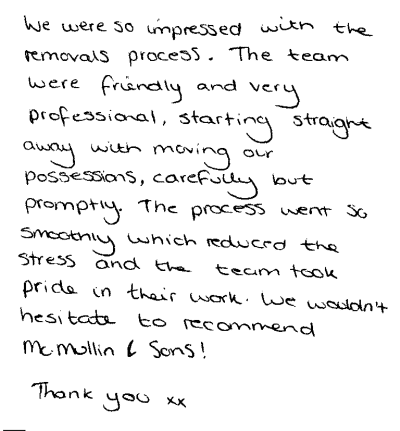 We were so impressed with the
removals process. The team
were friendly and very
professional, starting straight
away with moving our
possessions, carefully but
promptly. The process went so
smoothly which reduced the
stress and the team took
pride in their work. We wouldn't
hesitate to recommend
McMullin & Sons!
Thank you xx